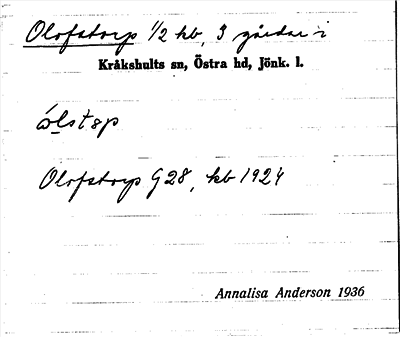 Olofstorp 1/2 kb, 3 gårdar i
Kråkshults sn, Östra hd, Jönk. l.
ɷ́lstəp
Olofstorp G28, kb 1924
Annalisa Anderson 1936